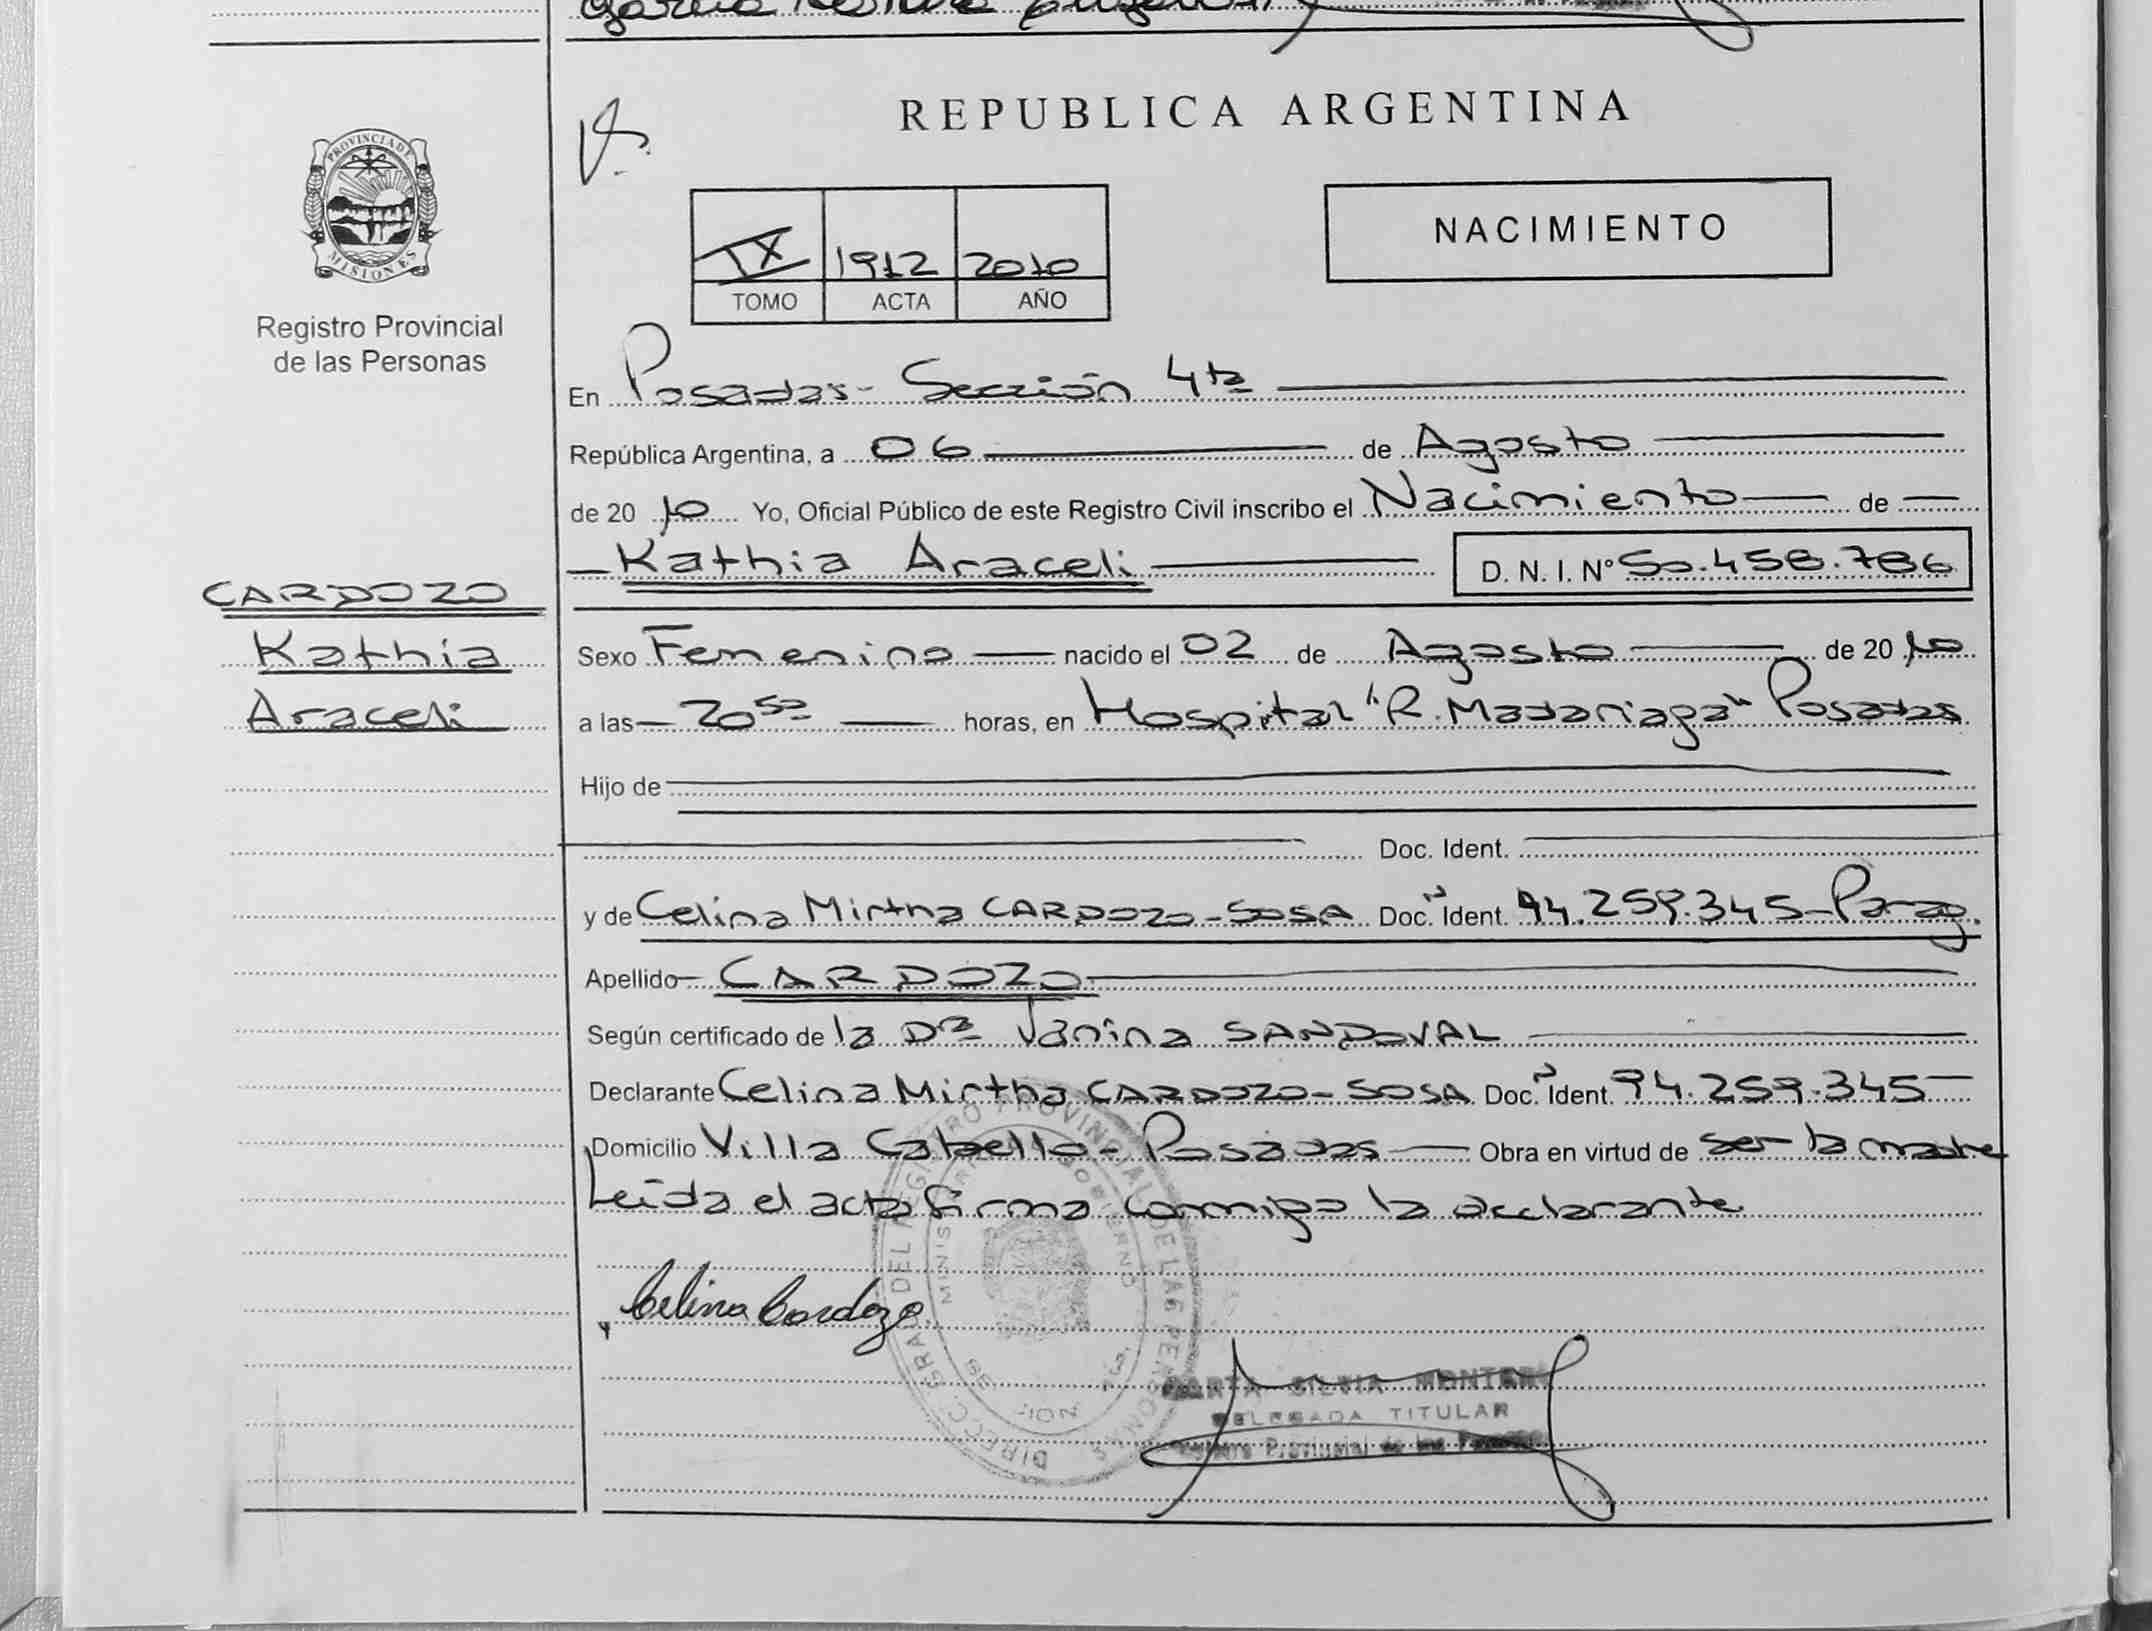 REPUBLICA ARGENTINA
PROVINCIA DE
MISIONES
Registro Provincial
de las Personas
IX 1912 2010
TOMO ACTA AÑO
NACIMIENTO
En Posadas - Sección 4ta
República Argentina, a 06 de Agosto
de 2010 Yo, Oficial Público de este Registro Civil inscribo el Nacimiento de
Kathia Araceli D. N. I. Nº 50.458.786
CARDOZO
Kathia
Araceli
Sexo Femenino nacido el 02 de Agosto de 2010
a las 20 50 horas, en Hospital "R. Madariaga" Posadas
Hijo de
Doc. Ident.
y de Celina Mirtha CARDOZO - SOSA Doc. Ident. 94.259.345 - Parag.
Apellido CARDOZO
Según certificado de la Dra Vanina SANDOVAL
Declarante Celina Mirtha CARDOZO - SOSA Doc. Ident. 94.259.345
Domicilio Villa Cabello - Posadas Obra en virtud de ser la madre
Leída el acta firma conmigo la declarante
Celina Cardozo
SILVIA MONTER
DELEGADA TITULAR
Provincial de las
DIRECC. GRAL. DEL REGISTRO PROVINCIAL DE LAS PERSONAS